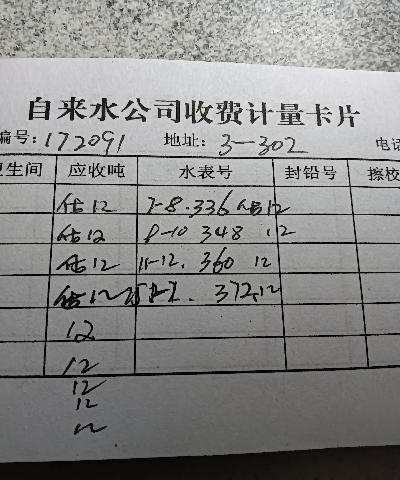 自来水公司收费计量卡片
编号:172091 地址:3-302 电话
卫生间 应收吨 水表号 封铅号 擦校
估12 7-8.336 12
估12 8-10 348 12
估12 11-12. 360 12
估12 372.12
12
12
12
12
12